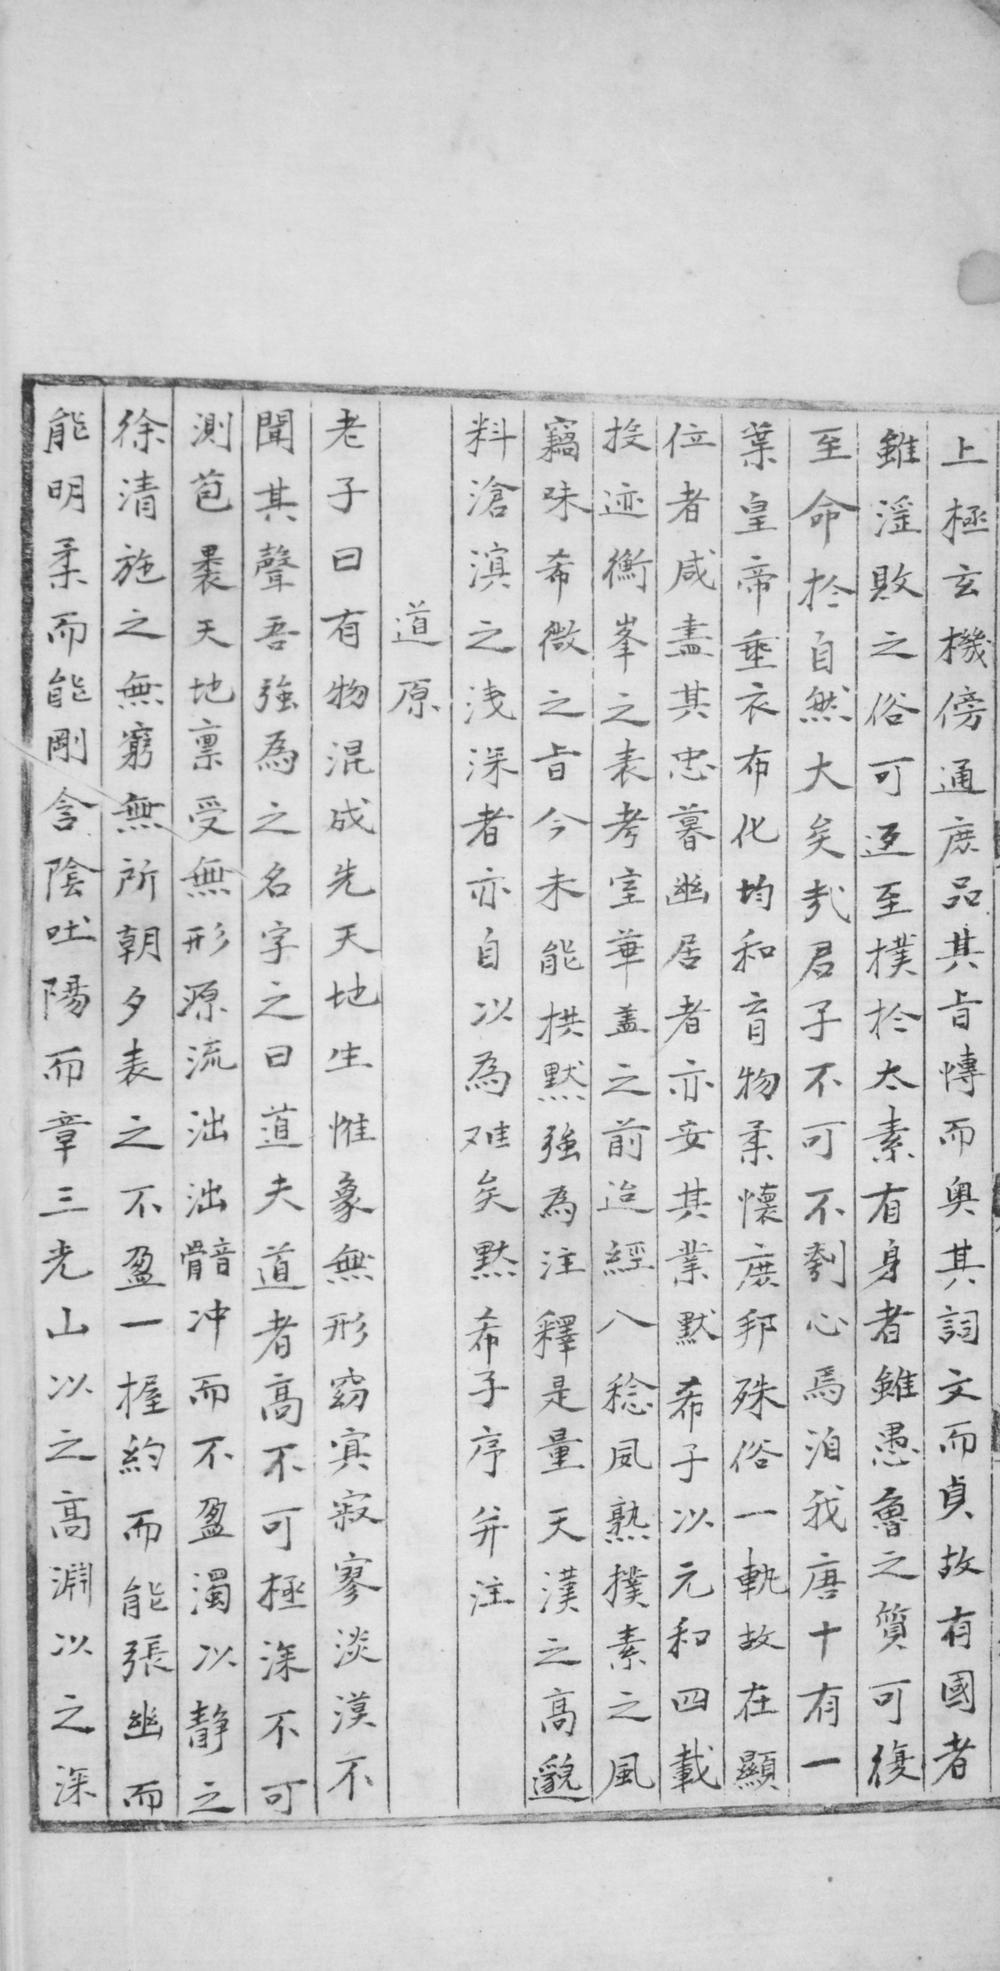 上極玄機傍通庶品其旨慱而奥其詞文而貞故有國者
雖滛敗之俗可返至樸於太素有身者雖愚魯之質可復
至命於自然大矣㢤君子不可不刳心焉洎我唐十有一
葉皇帝垂衣布化均和育物柔懷庶邦殊俗一軌故在顯
位者咸盡其忠暮幽居者亦安其業默希子以元和四載
投迹衡峯之表考室華盖之前迨經八稔夙熟撲素之風
竊味希微之旨今未能栱默強為注釋是量天漢之高邈
料滄溟之浅深者亦自以為难矣默希子序并注
道原
老子曰有物混成先天地生惟象無形窈㝠寂寥淡漠不
聞其聲吾強為之名字之曰道夫道者高不可極深不可
測苞褁天地禀受無形源流泏泏㱏冲而不盈濁以靜之
徐清施之無窮無所朝夕表之不盈一握約而能張幽而
能明柔而能剛含陰吐陽而章三光山以之高淵以之深